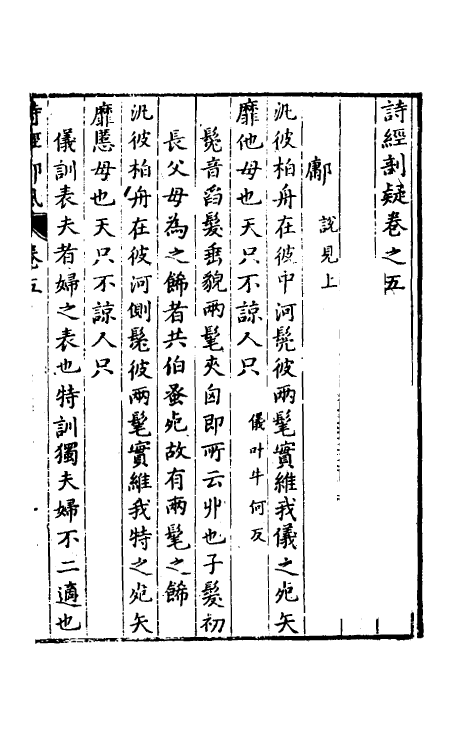 詩經剖疑卷之五
鄘 說見上
汎彼柏舟在彼中河髧彼兩髦實維我儀之死矢
靡他母也天只不諒人只 儀叶牛何反
髧音萏髮垂貌兩髦夾囟即所云丱也子髮初
長父母為之飾者共伯蚤死故有兩髦之飾
汎彼柏舟在彼河側髧彼兩髦實維我特之死矢
靡慝母也天只不諒人只
儀訓表夫者婦之表也特訓獨夫婦不二適也
詩經 鄘風 卷五